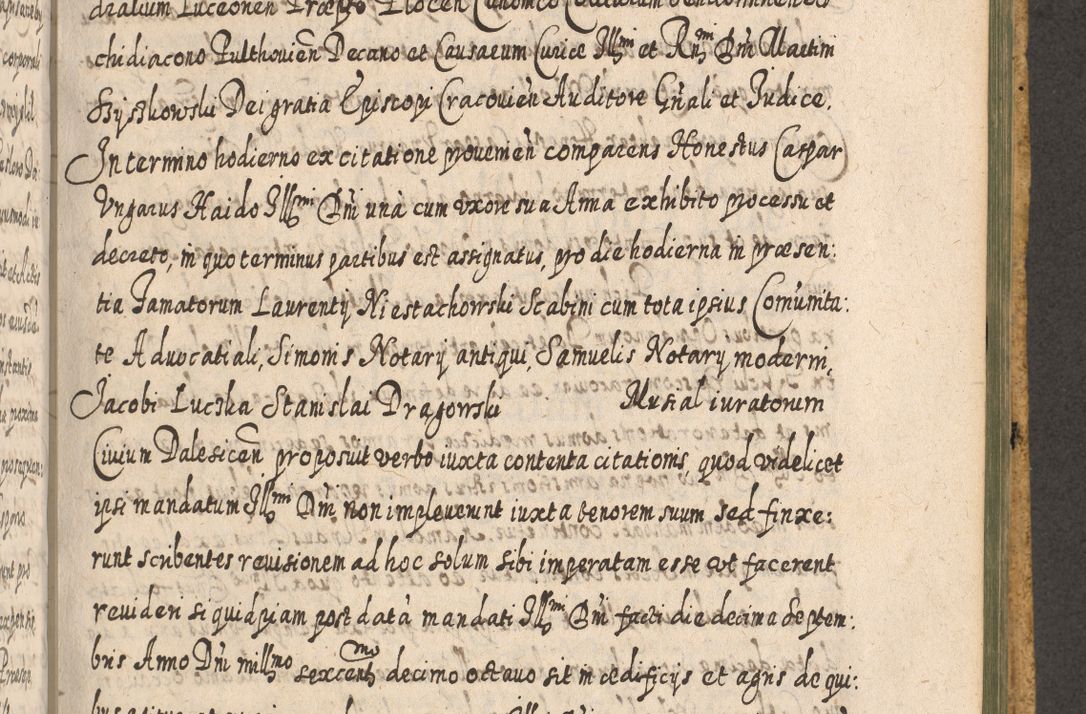 dralium Luceorien Præpto Plocen Canonico
chidiacono Pulthouien̄ Decano et Causarum Curiæ Illmi et Rn̄mi Dn̄i Martini
Szyszkowski Dei gratia Episcopi Cracouien̄ Auditore Gn̄ali et Iudice.
In termino hodierno ex citatione proueniēn comparens Honestus Caspar
Vngarus Haido Illmi Dn̄i unà cum uxore sua Anna exhibito processu et
decreto, in quo terminus partibus est assignatus, pro die hodierna in præsen:
tia Famatorum Laurentij Niestachowski Scabini cum tota ipsius Com̄unita:
te Aduocatiali, Simonis Notarij antiqui, Samuelis Notarij moderni,
Jacobi Luczka Stanislai Dragowski Musial iuratorum
Ciuium Dalesicen̄ proposuit verbo iuxta contenta citationis, quod videlicet
ipsi mandatum Illmi Dn̄i non impleuerunt iuxta tenorem suum sed finxe:
runt scribentes reuisionem ad hoc solum sibi imperatam esse ut facerent
reuiden si quidpiam post datà mandati Illmi Dn̄i facti die decima Septem:
bris Anno Dn̄i millmo sexcentmo decimo octauo sit in ædificijs et agris de qui: